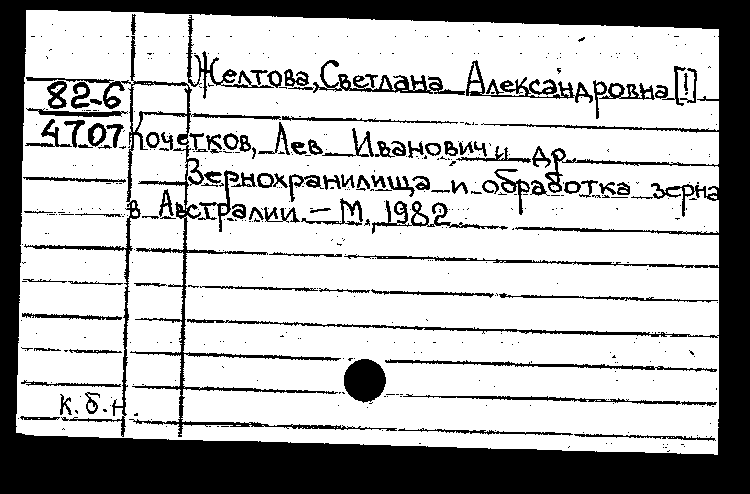 Желтова, Светлана Александровна [!].
82-6
4707
Кочетков, Лев Иванович и др.
Зернохранилища и обработка зерна
в Австралии. – М., 1982.
к.б.н.